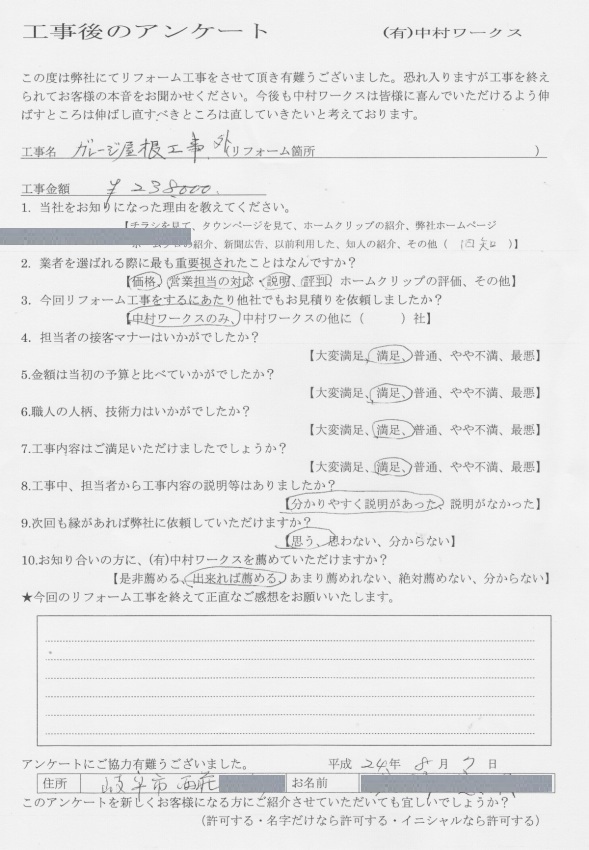 工事後のアンケート (有)中村ワークス
この度は弊社にてリフォーム工事をさせて頂き有難うございました。恐れ入りますが工事を終え
られてお客様の本音をお聞かせください。今後も中村ワークスは皆様に喜んでいただけるよう伸
ばすところは伸ばし直すべきところは直していきたいと考えております。
工事名 ガレージ屋根工事 外(リフォーム箇所 )
工事金額 ¥238000.
1. 当社をお知りになった理由を教えてください。
【チラシを見て、タウンページを見て、ホームクリップの紹介、弊社ホームページ
の紹介、新聞広告、以前利用した、知人の紹介、その他( 旧知 )】
2. 業者を選ばれる際に最も重要視されたことはなんですか?
【価格、営業担当の対応・説明、評判、ホームクリップの評価、その他】
3. 今回リフォーム工事をするにあたり他社でもお見積りを依頼しましたか?
【中村ワークスのみ、中村ワークスの他に( )社】
4. 担当者の接客マナーはいかがでしたか?
【大変満足、満足、普通、やや不満、最悪】
5.金額は当初の予算と比べていかがでしたか?
【大変満足、満足、普通、やや不満、最悪】
6.職人の人柄、技術力はいかがでしたか?
【大変満足、満足、普通、やや不満、最悪】
7.工事内容はご満足いただけましたでしょうか?
【大変満足、満足、普通、やや不満、最悪】
8.工事中、担当者から工事内容の説明等はありましたか?
【分かりやすく説明があった、説明がなかった】
9.次回も縁があれば弊社に依頼していただけますか?
【思う、思わない、分からない】
10.お知り合いの方に、(有)中村ワークスを薦めていただけますか?
【是非薦める、出来れば薦める、あまり薦めれない、絶対薦めない、分からない】
★今回のリフォーム工事を終えて正直なご感想をお願いいたします。
アンケートにご協力有難うございました。 平成 24年 8月 7日
住所 岐阜市西荘 お名前
このアンケートを新しくお客様になる方にご紹介させていただいても宜しいでしょうか?
(許可する・名字だけなら許可する・イニシャルなら許可する)